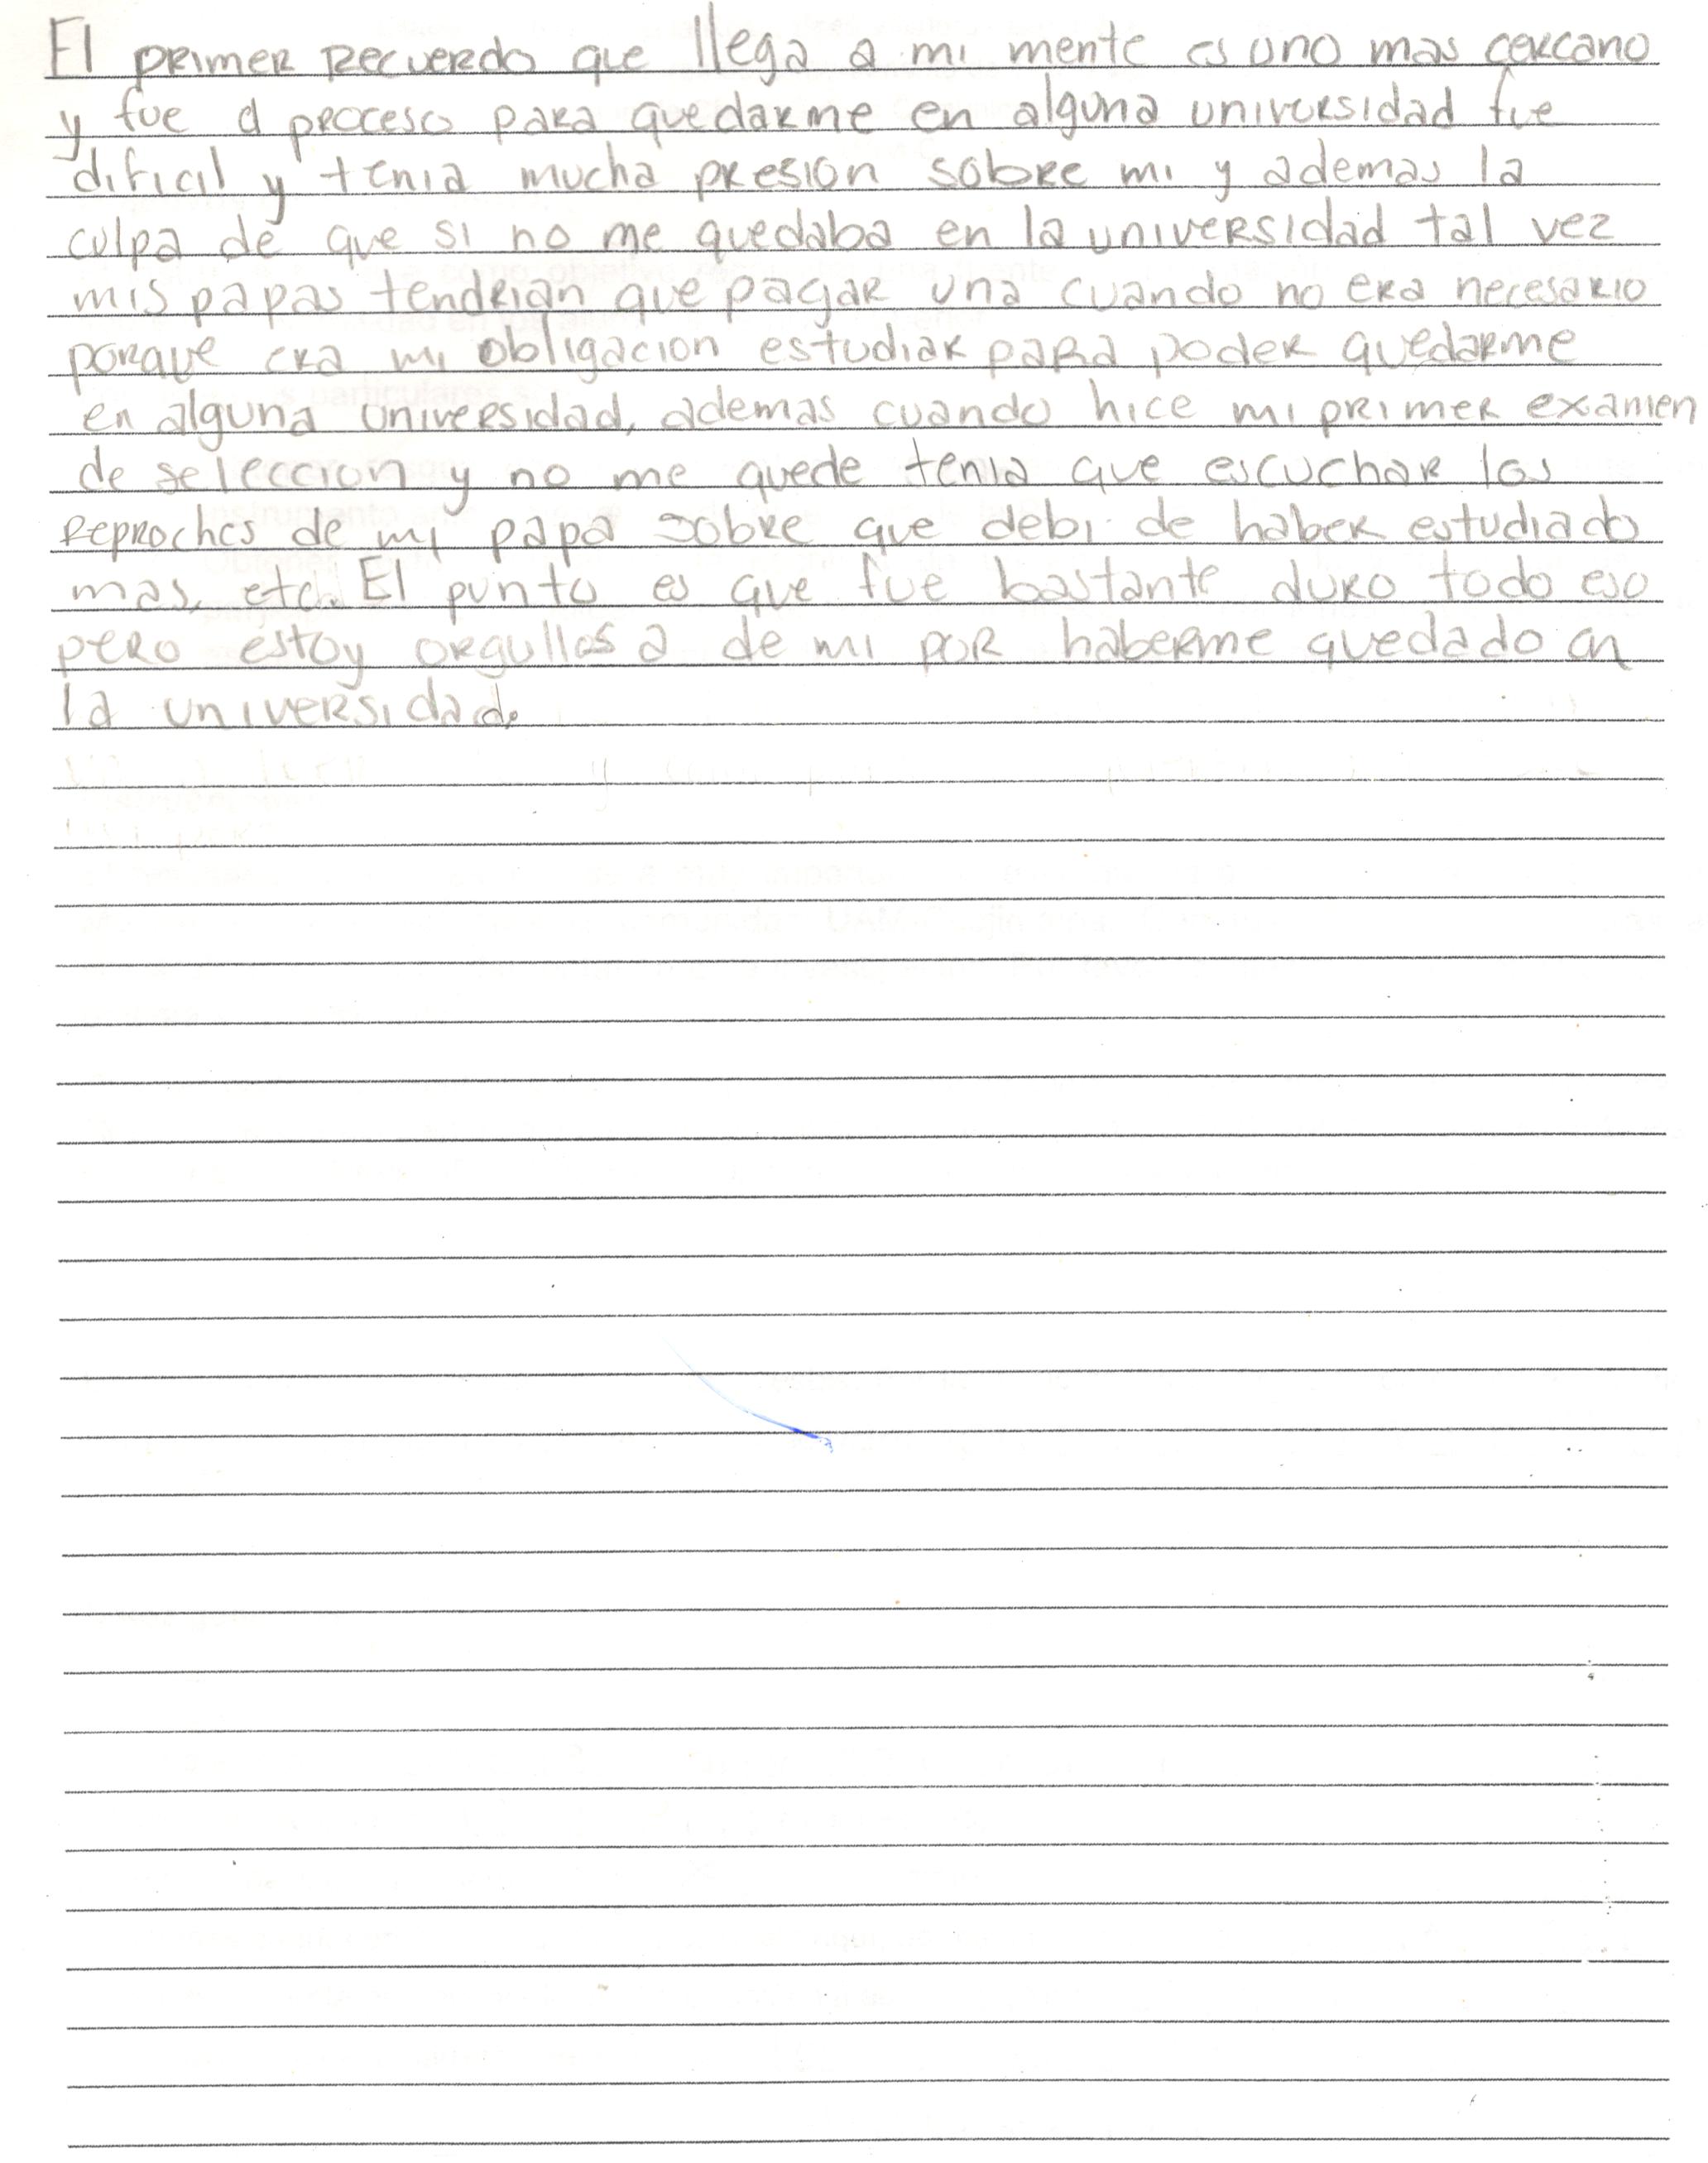 El primer recuerdo que llega a mi mente es uno mas cercano
y fue el proceso para quedarme en alguna universidad fue
dificil y tenia mucha presion sobre mi y ademas la
culpa de que si no me quedaba en la universidad tal vez
mis papas tendrian que pagar una cuando no era necesario
porque era mi obligacion estudiar para poder quedarme
en alguna universidad, ademas cuando hice mi primer examen
de seleccion y no me quede tenia que escuchar los
reproches de mi papa sobre que debi de haber estudiado
mas, etc. El punto es que fue bastante duro todo eso
pero estoy orgullosa de mi por haberme quedado en
la universidad.